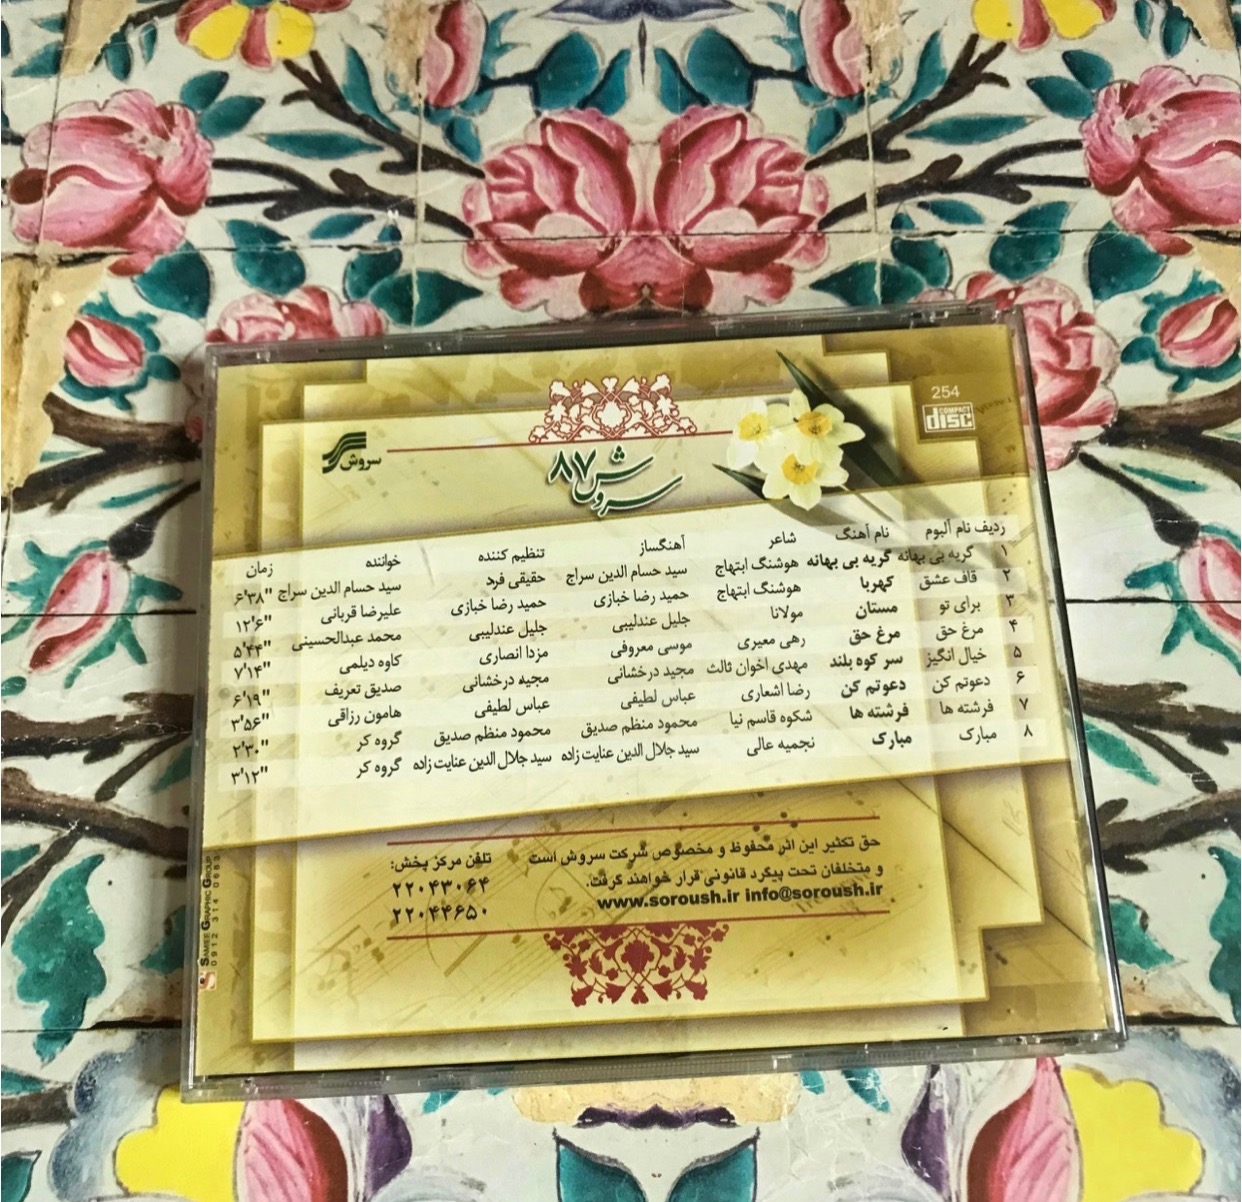 254
COMPACT
disc
سروش
سروش ۸۷
ردیف نام آلبوم نام آهنگ شاعر آهنگساز تنظیم کننده خواننده زمان
۱ گریه بی بهانه گریه بی بهانه هوشنگ ابتهاج سید حسام الدین سراج حقیقی فرد سید حسام الدین سراج ۶'۳۸"
۲ قاف عشق کهربا هوشنگ ابتهاج حمید رضا خبازی حمید رضا خبازی علیرضا قربانی ۱۲'۶"
۳ برای تو مستان مولانا جلیل عندلیبی جلیل عندلیبی محمد عبدالحسینی ۵'۴۴"
۴ مرغ حق مرغ حق رهی معیری موسی معروفی مزدا انصاری کاوه دیلمی ۷'۱۴"
۵ خیال انگیز سر کوه بلند مهدی اخوان ثالث مجید درخشانی مجید درخشانی صدیق تعریف ۶'۱۹"
۶ دعوتم کن دعوتم کن رضا اشعاری عباس لطیفی عباس لطیفی هامون رزاقی ۳'۵۶"
۷ فرشته ها فرشته ها شکوه قاسم نیا محمود منظم صدیق محمود منظم صدیق گروه کر ۲'۳۰"
۸ مبارک مبارک نجمیه عالی سید جلال الدین عنایت زاده سید جلال الدین عنایت زاده گروه کر ۳'۱۲"
حق تکثیر این اثر محفوظ و مخصوص شرکت سروش است
و متخلفان تحت پیگرد قانونی قرار خواهند گرفت.
www.soroush.ir info@soroush.ir
تلفن مرکز پخش:
۲۲۰۴۳۰۶۴
۲۲۰۴۴۶۵۰
SAMIEE GRAPHIC GROUP
0912 314 0683